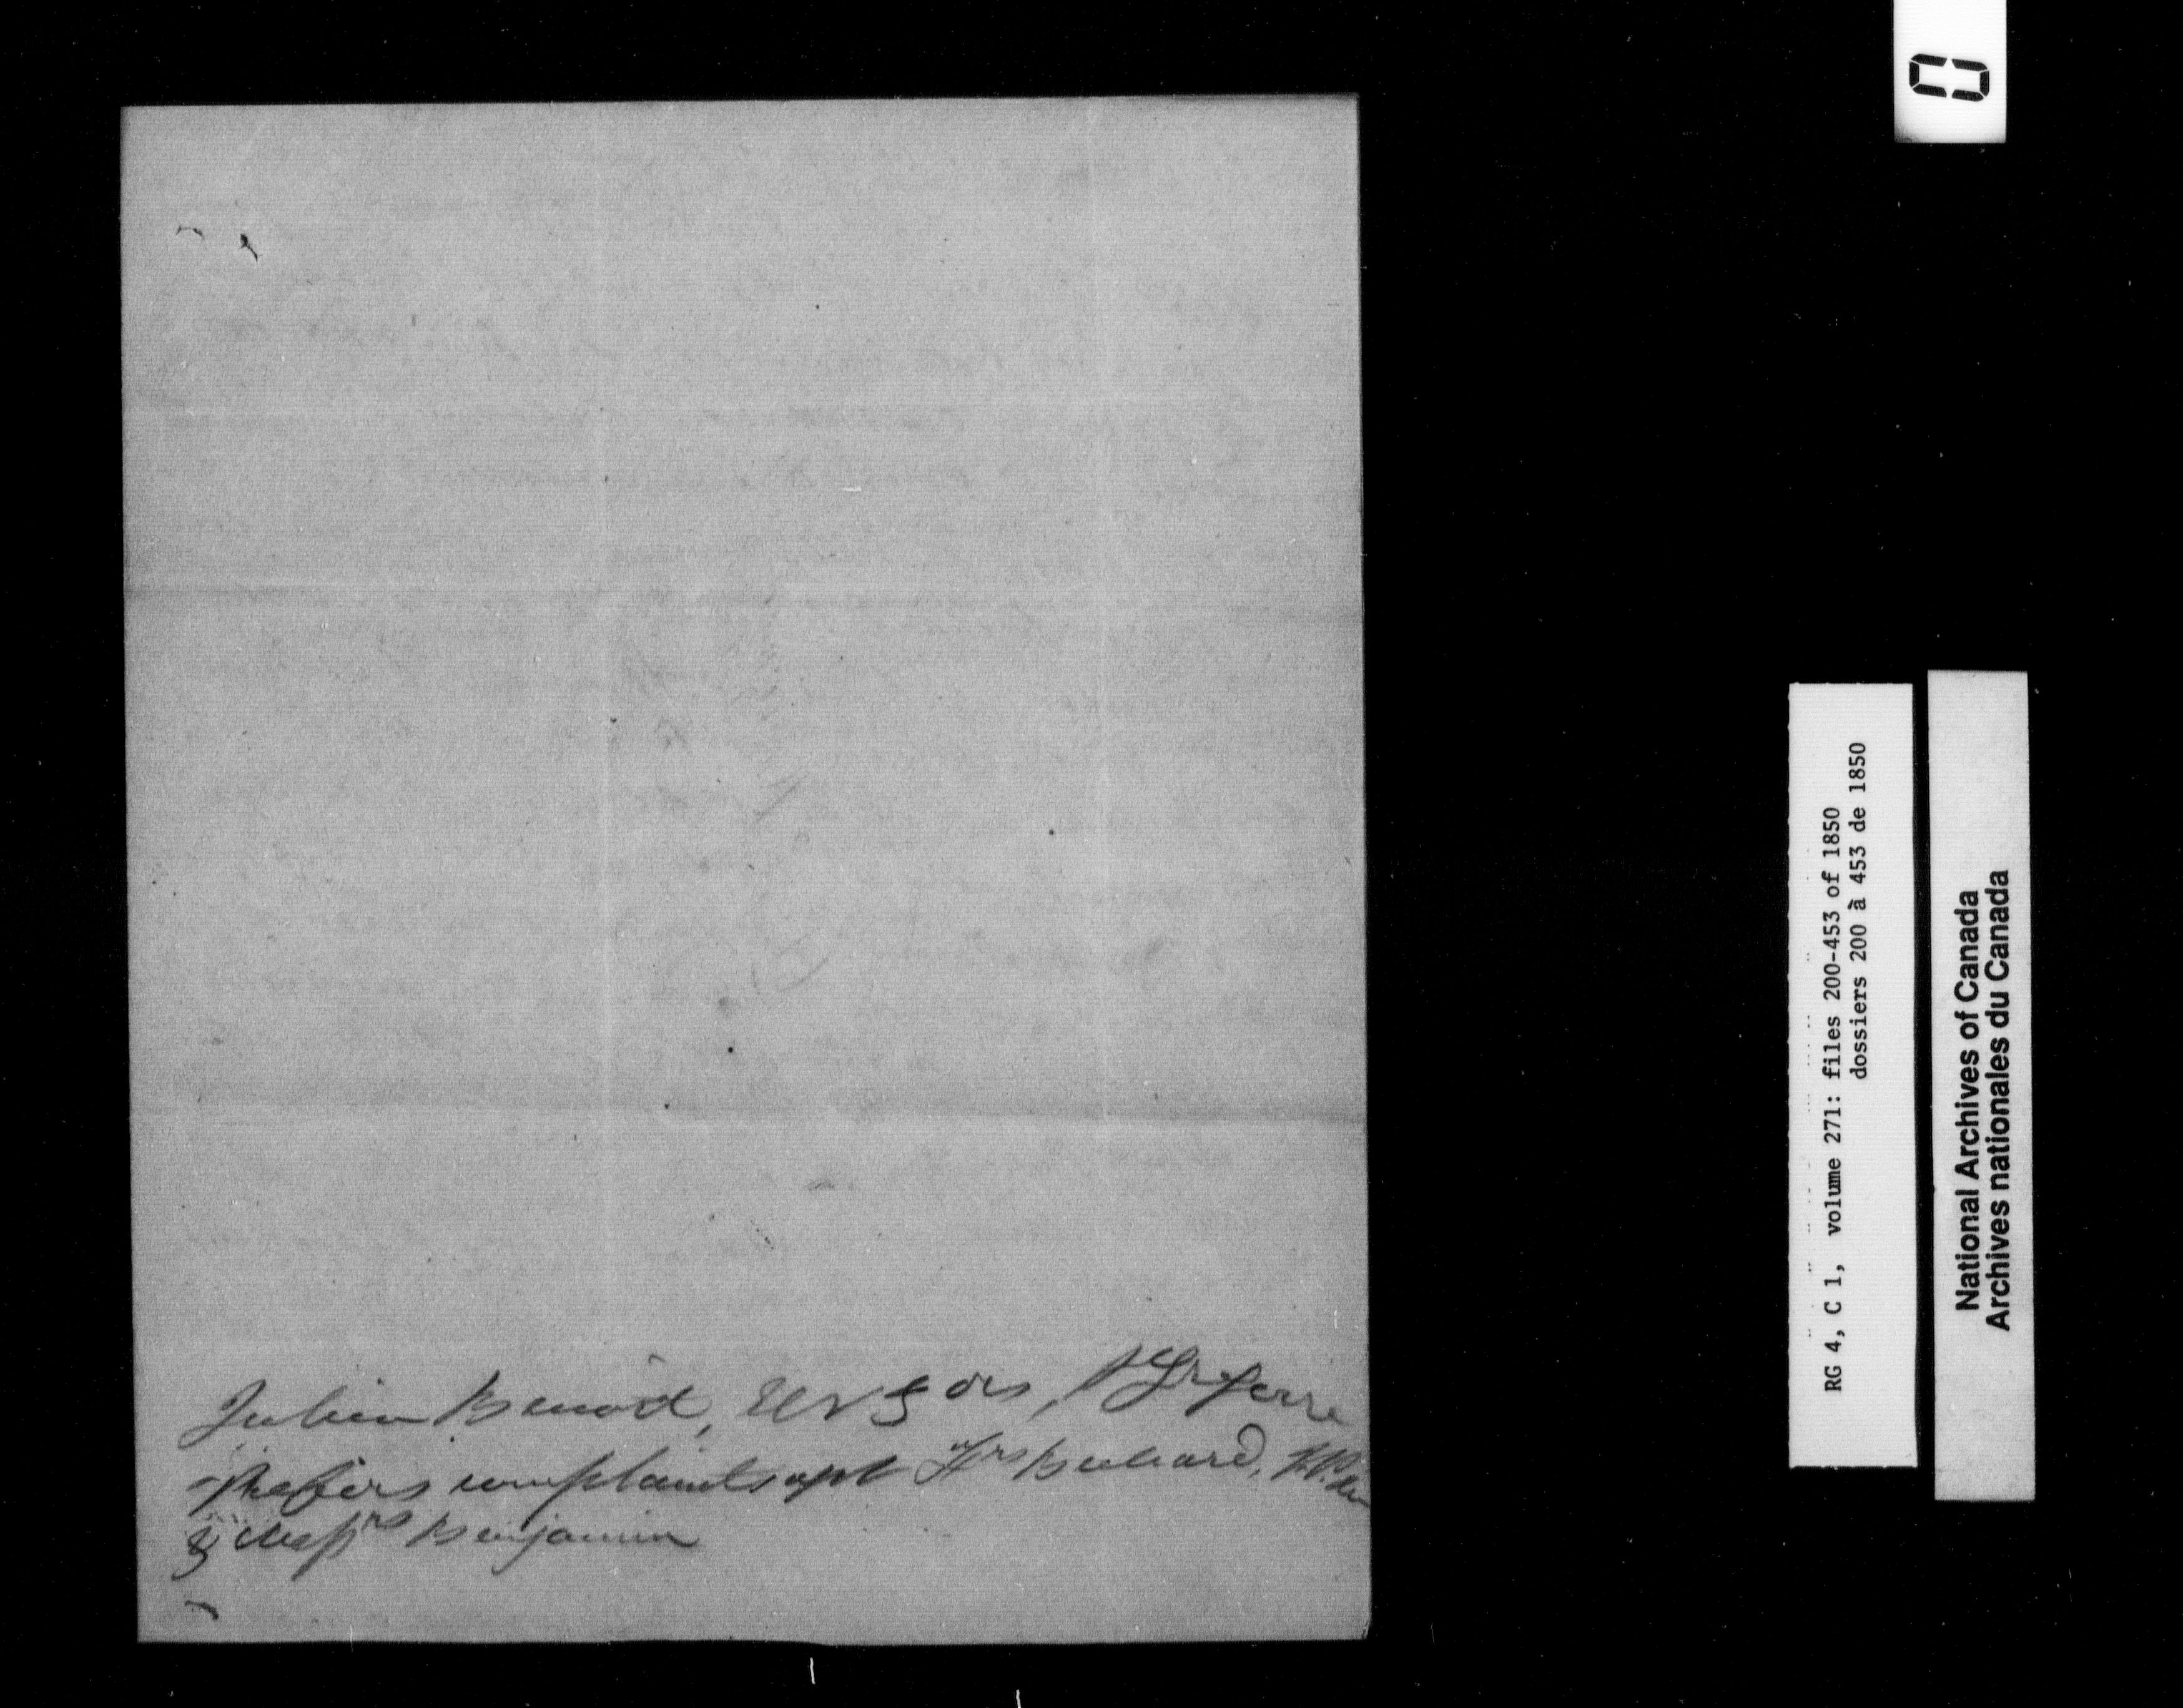 Julien Benoit, & ors, St Grégoire
prefers complaints agst Frs Bechard, N.P.
& Messrs Benjamin
RG 4, C 1, volume 271: files 200-453 of 1850
dossiers 200 à 453 de 1850
National Archives of Canada
Archives nationales du Canada